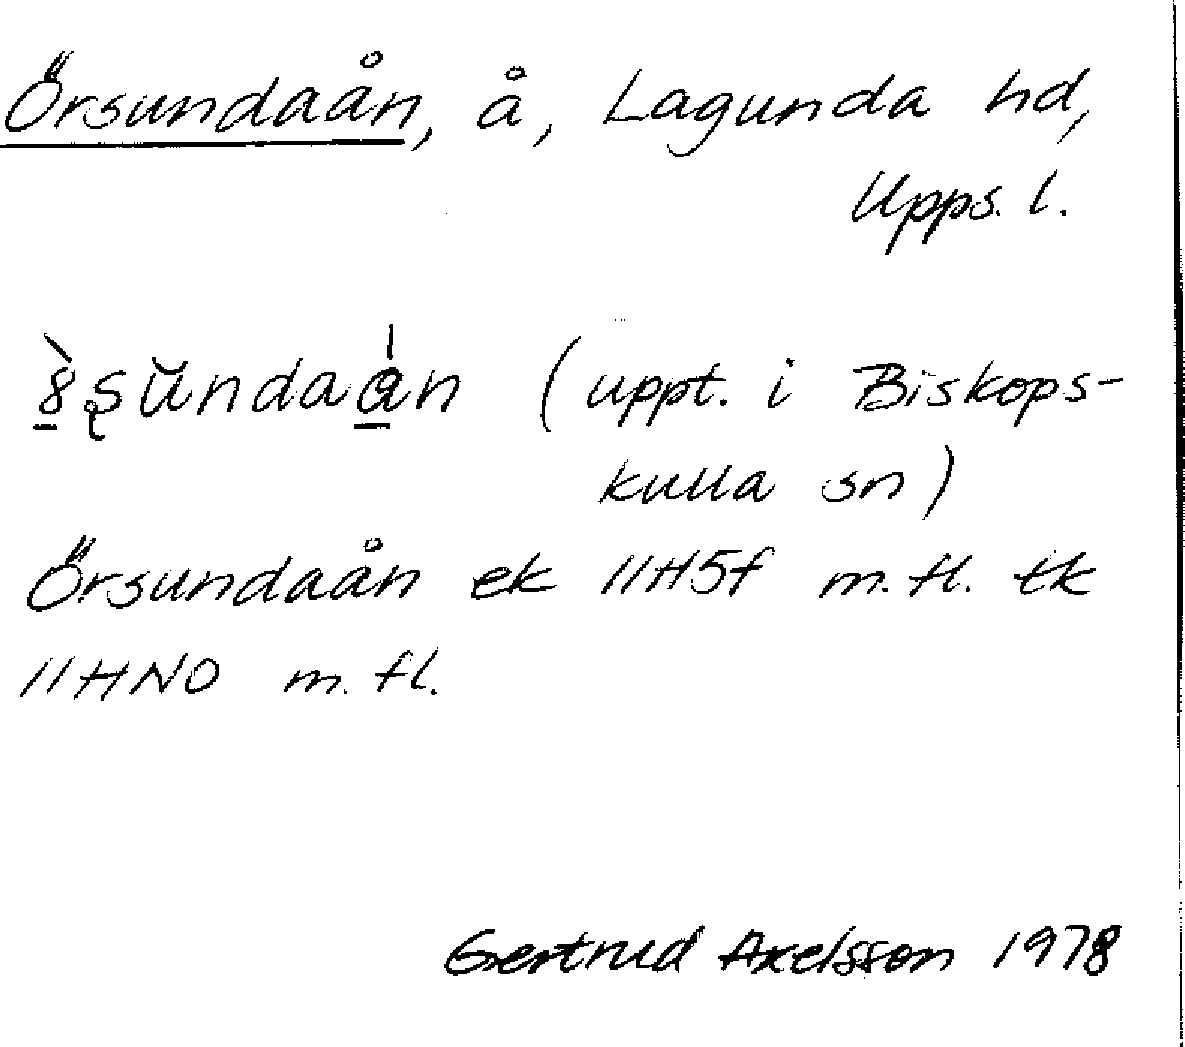 Örsundaån, å, Lagunda hd,
Upps. l.
(uppt. i Biskops-
kulla sn)
Örsundaån ek 11H5f m. fl. tk
11HNO m. fl.
Gertrud Axelsson 1978